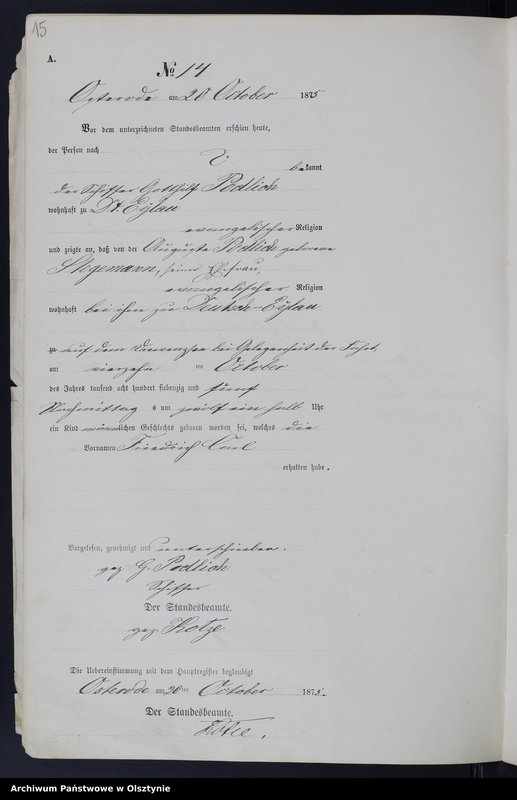 15
A.
№ 14
Osterode am 20 October 1875
Vor dem unterzeichneten Standesbeamten erschien heute,
der Person nach
bekannt
der Schiffer Gotthilf Podlich
wohnhaft zu Dt. Eylau
evangelischer Religion
und zeigte an, daß von der Auguste Podlich geborene
Stegemann, seiner Ehefrau,
evangelischer Religion
wohnhaft bei ihm zu Deutsch-Eylau
zu auf dem Drewenzsee bei Gelegenheit der Fahrt,
am vierzehn ten October
des Jahres tausend acht hundert siebenzig und fünf
Nachmittag s um zwölf ein halb Uhr
ein Kind männlichen Geschlechts geboren worden sei, welches die
Vornamen Friedrich Carl
erhalten habe.
Vorgelesen, genehmigt und unterschrieben.
gez. G. Podlich
Schiffer
Der Standesbeamte.
gez. Kotze
Die Uebereinstimmung mit dem Hauptregister beglaubigt
Osterode am 20ten October 1875.
Der Standesbeamte.
Kotze.
Archiwum Państwowe w Olsztynie